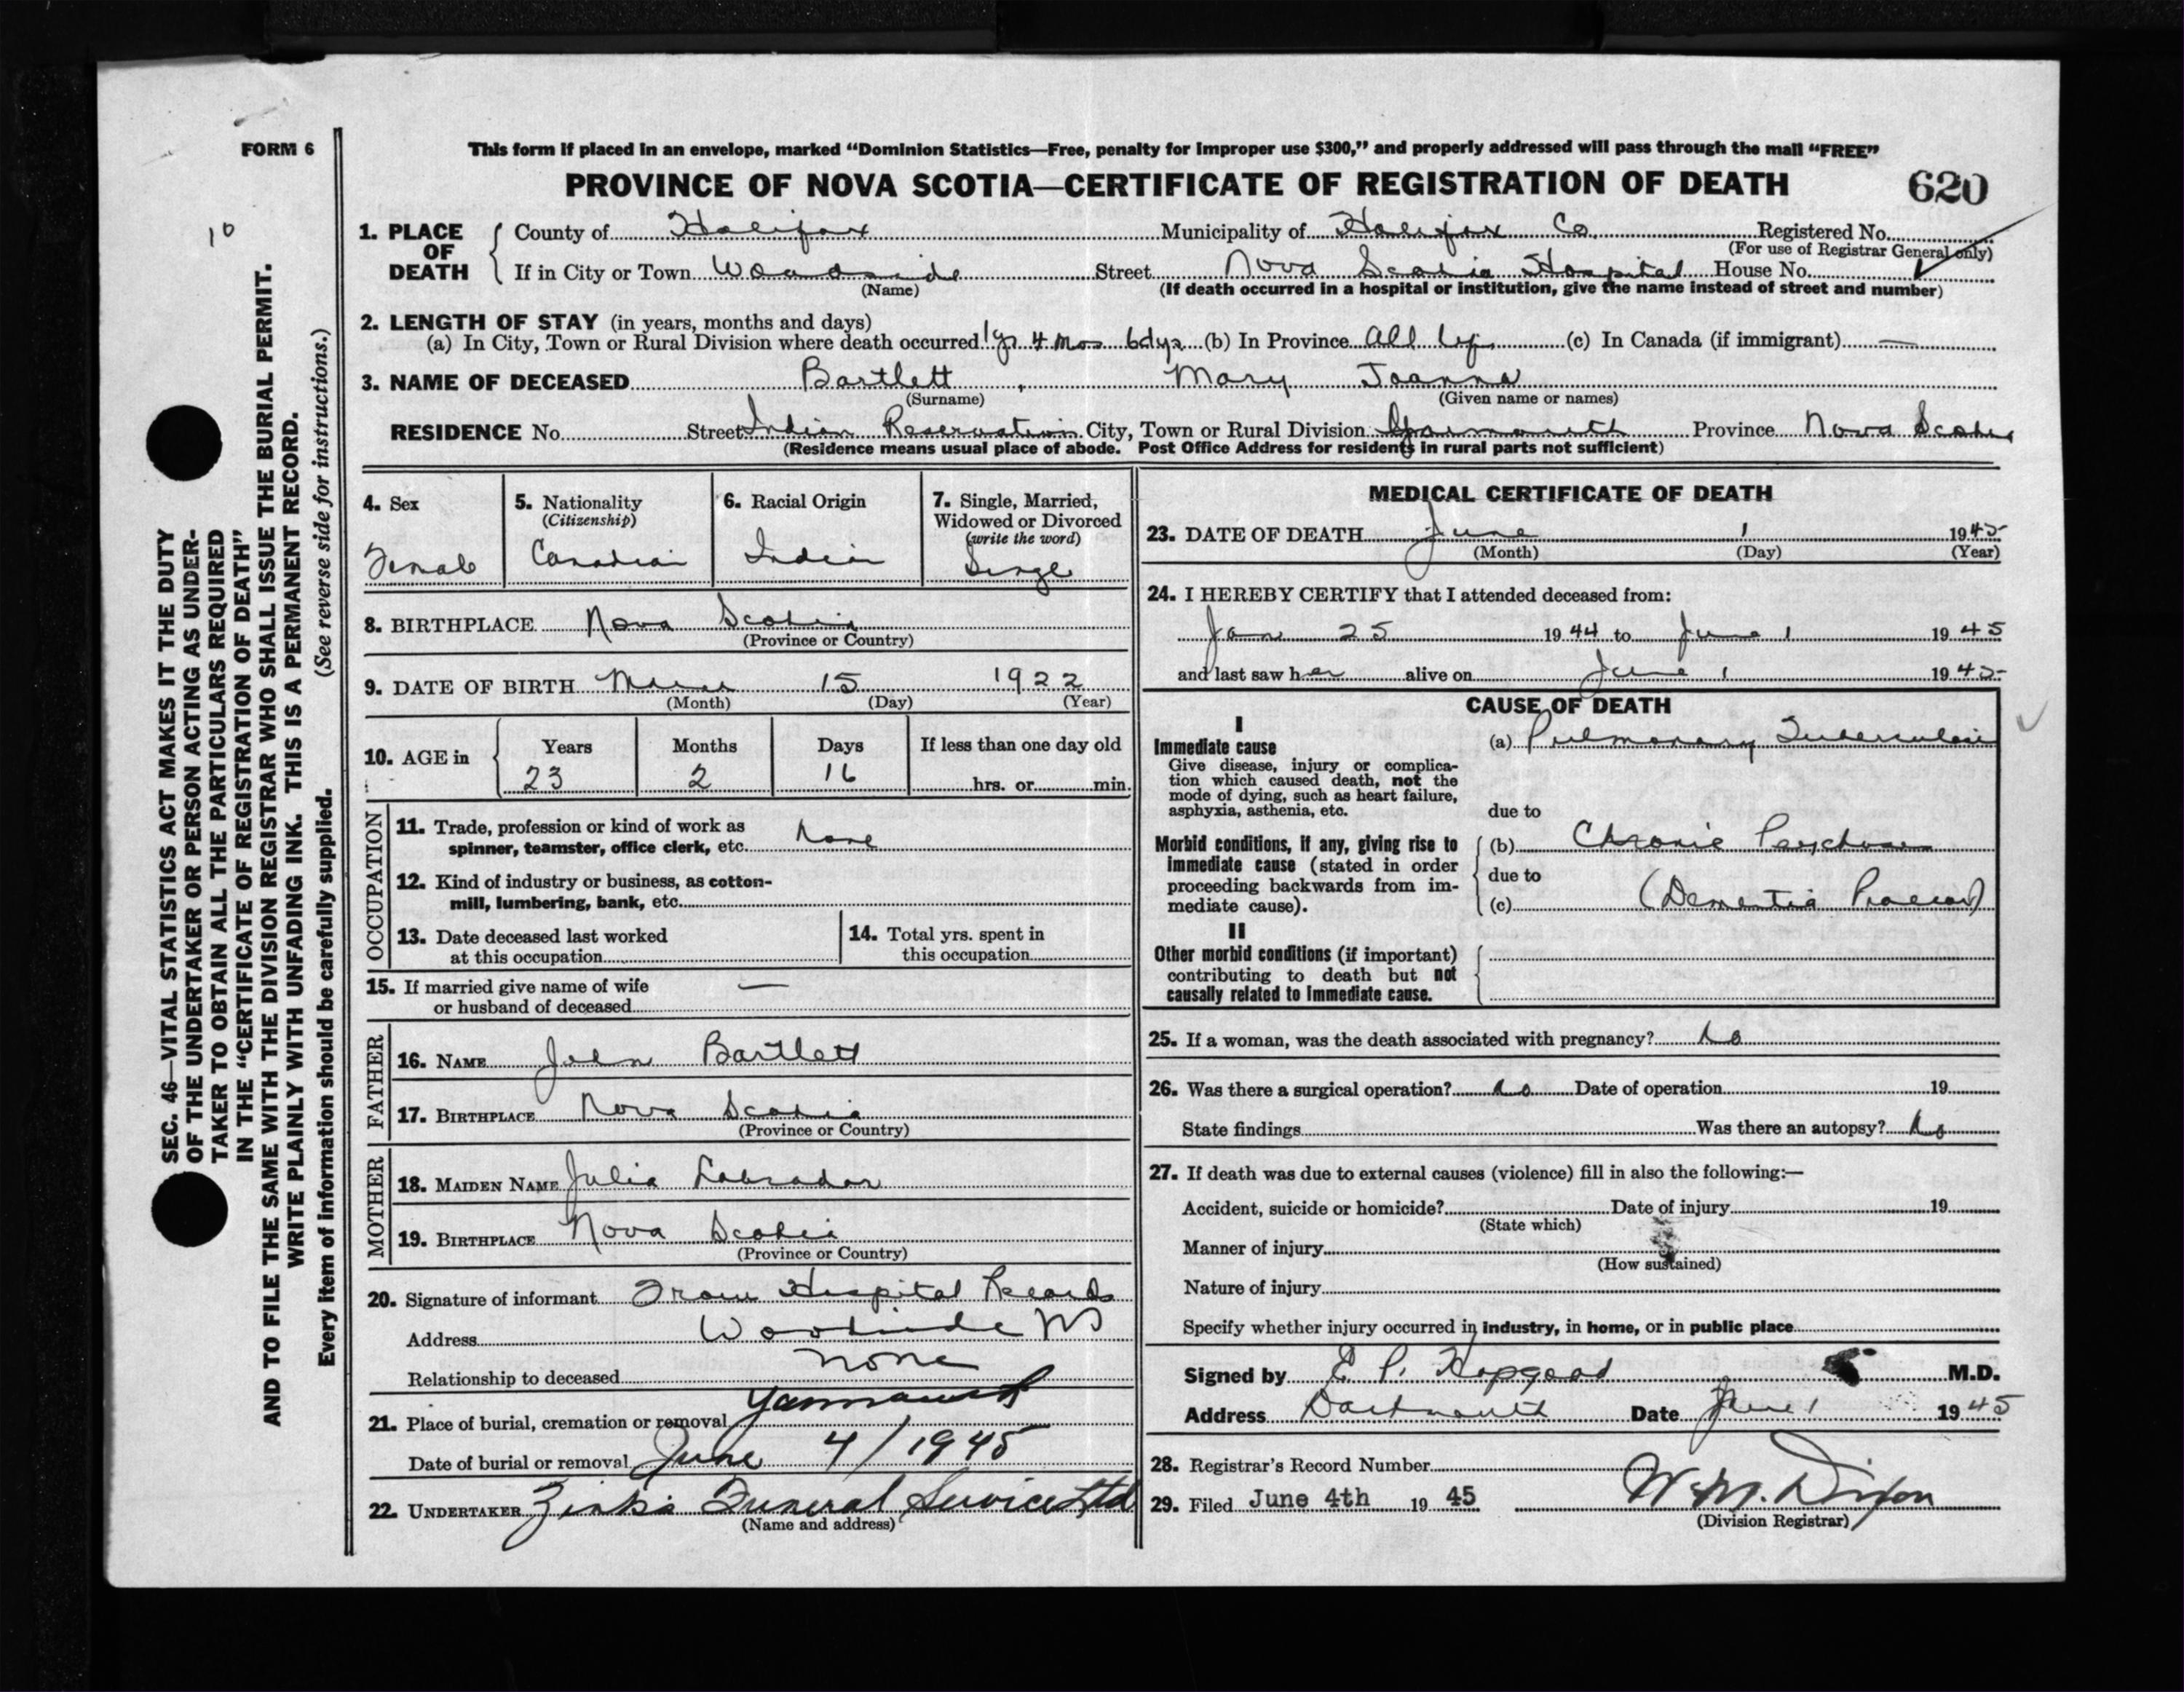 FORM 6
This form if placed in an envelope, marked “Dominion Statistics—Free, penalty for improper use $300,” and properly addressed will pass through the mail “FREE”
PROVINCE OF NOVA SCOTIA—CERTIFICATE OF REGISTRATION OF DEATH 620
10
SEC. 46—VITAL STATISTICS ACT MAKES IT THE DUTY
OF THE UNDERTAKER OR PERSON ACTING AS UNDER-
TAKER TO OBTAIN ALL THE PARTICULARS REQUIRED
IN THE “CERTIFICATE OF REGISTRATION OF DEATH”
AND TO FILE THE SAME WITH THE DIVISION REGISTRAR WHO SHALL ISSUE THE BURIAL PERMIT.
WRITE PLAINLY WITH UNFADING INK. THIS IS A PERMANENT RECORD.
Every item of information should be carefully supplied. (See reverse side for instructions.)
1. PLACE OF DEATH
County of Halifax Municipality of Halifax Co Registered No.
(For use of Registrar General only)
If in City or Town Woodside Street Nova Scotia Hospital House No.
(Name) (If death occurred in a hospital or institution, give the name instead of street and number)
2. LENGTH OF STAY (in years, months and days)
(a) In City, Town or Rural Division where death occurred 1yr 4 mos 6dys (b) In Province All life (c) In Canada (if immigrant) —
3. NAME OF DECEASED Bartlett, Mary Joanna
(Surname) (Given name or names)
RESIDENCE No. Street Indian Reservation City, Town or Rural Division Yarmouth Province Nova Scotia
(Residence means usual place of abode. Post Office Address for residents in rural parts not sufficient)
4. Sex
Female
5. Nationality
(Citizenship)
Canadian
6. Racial Origin
Indian
7. Single, Married,
Widowed or Divorced
(write the word)
Single
8. BIRTHPLACE Nova Scotia
(Province or Country)
9. DATE OF BIRTH 15 1922
(Month) (Day) (Year)
10. AGE in
Years Months Days If less than one day old
23 2 16 hrs. or min.
OCCUPATION
11. Trade, profession or kind of work as
spinner, teamster, office clerk, etc. None
12. Kind of industry or business, as cotton-
mill, lumbering, bank, etc.
13. Date deceased last worked
at this occupation
14. Total yrs. spent in
this occupation
15. If married give name of wife —
or husband of deceased
FATHER
16. NAME John Bartlett
17. BIRTHPLACE Nova Scotia
(Province or Country)
MOTHER
18. MAIDEN NAME Julia Labrador
19. BIRTHPLACE Nova Scotia
(Province or Country)
20. Signature of informant From Hospital Records
Address Woodside NS
Relationship to deceased none
21. Place of burial, cremation or removal Yarmouth
Date of burial or removal June 4/1945
22. UNDERTAKER Zink's Funeral Service Ltd
(Name and address)
MEDICAL CERTIFICATE OF DEATH
23. DATE OF DEATH June 1 1945
(Month) (Day) (Year)
24. I HEREBY CERTIFY that I attended deceased from:
Jan 25 1944 to June 1 1945
and last saw her alive on June 1 1945
CAUSE OF DEATH
I
Immediate cause
Give disease, injury or complica-
tion which caused death, not the
mode of dying, such as heart failure,
asphyxia, asthenia, etc.
(a) Pulmonary Tuberculosis
due to
Morbid conditions, if any, giving rise to
immediate cause (stated in order
proceeding backwards from im-
mediate cause).
(b) Chronic Psychosis
due to
(c) (Dementia Praecox)
II
Other morbid conditions (if important)
contributing to death but not
causally related to immediate cause.
25. If a woman, was the death associated with pregnancy? No
26. Was there a surgical operation? No Date of operation 19
State findings Was there an autopsy? No
27. If death was due to external causes (violence) fill in also the following:—
Accident, suicide or homicide? Date of injury 19
(State which)
Manner of injury
(How sustained)
Nature of injury
Specify whether injury occurred in industry, in home, or in public place
Signed by E P. Hopgood M.D.
Address Dartmouth Date June 1 1945
28. Registrar's Record Number
29. Filed June 4th 19 45 W. M. Dixon
(Division Registrar)